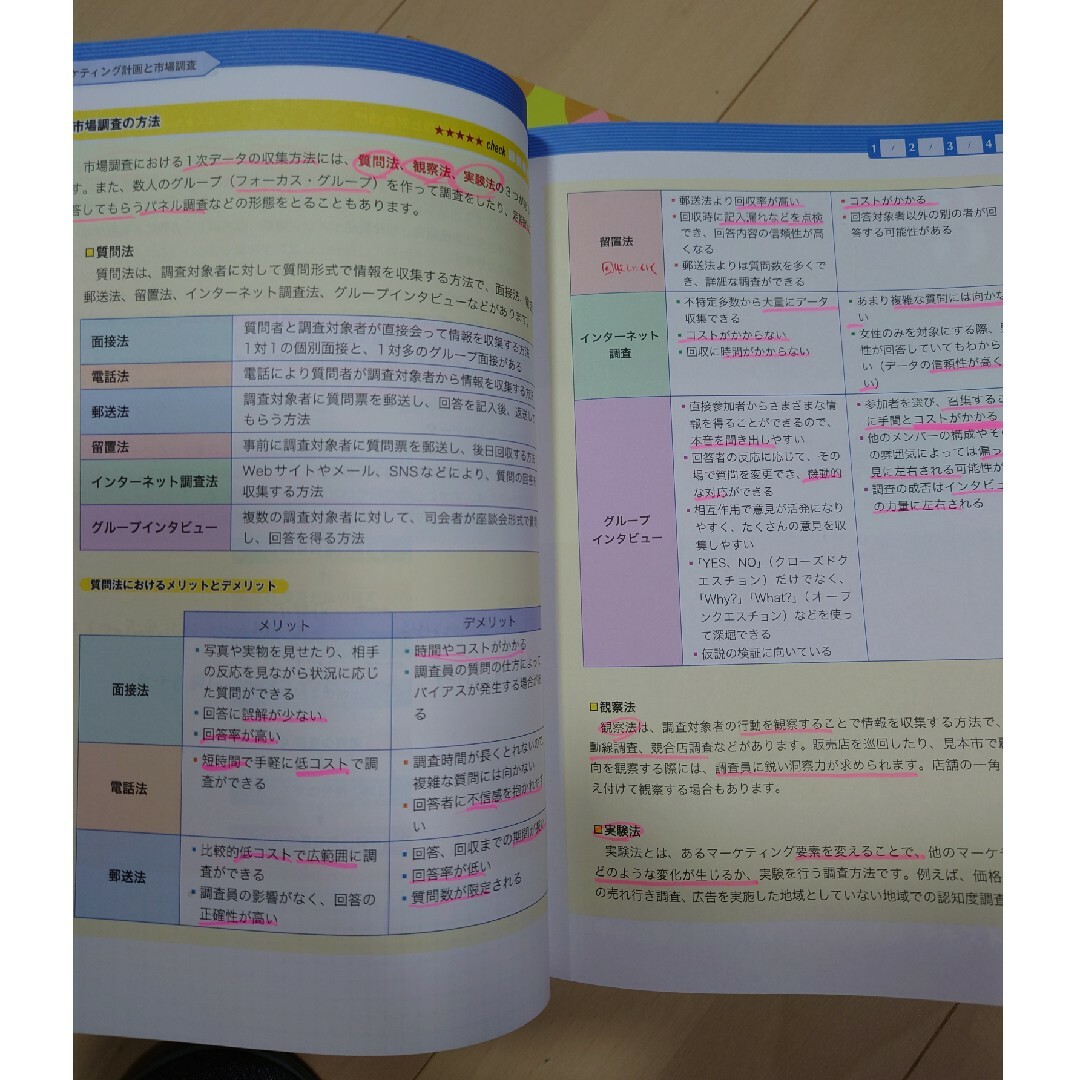 ケティング計画と市場調査
市場調査の方法
★★★★★ check
市場調査における1次データの収集方法には、質問法、観察法、実験法の3つが
す。また、数人のグループ(フォーカス・グループ)を作って調査をしたり、
答してもらうパネル調査などの形態をとることもあります。
質問法
質問法は、調査対象者に対して質問形式で情報を収集する方法で、面接法、電
郵送法、留置法、インターネット調査法、グループインタビューなどがあります。
面接法
質問者と調査対象者が直接会って情報を収集する方法
1対1の個別面接と、1対多のグループ面接がある
電話法
電話により質問者が調査対象者から情報を収集する方法
郵送法
調査対象者に質問票を郵送し、回答を記入後、返送して
もらう方法
留置法
事前に調査対象者に質問票を郵送し、後日回収する方法
インターネット調査法
Webサイトやメール、SNSなどにより、質問の回答を
収集する方法
グループインタビュー
複数の調査対象者に対して、司会者が座談会形式で質
し、回答を得る方法
質問法におけるメリットとデメリット
メリット
デメリット
面接法
・写真や実物を見せたり、相手
の反応を見ながら状況に応じ
た質問ができる
・回答に誤解が少ない
・回答率が高い
・時間やコストがかかる
・調査員の質問の仕方によって
バイアスが発生する場合があ
る
電話法
・短時間で手軽に低コストで調
査ができる
・調査時間が長くとれないので
複雑な質問には向かない
・回答者に不信感を抱かれやす
い
郵送法
・比較的低コストで広範囲に調
査ができる
・調査員の影響がなく、回答の
正確性が高い
・回答、回収までの期間が長い
・回答率が低い
・質問数が限定される
1 / 2 / 3 / 4
留置法
・郵送法より回収率が高い
・回収時に記入漏れなどを点検
でき、回答内容の信頼性が高
くなる
・郵送法よりは質問数を多くで
き、詳細な調査ができる
・コストがかかる
・回答対象者以外の別の者が回
答する可能性がある
インターネット
調査
・不特定多数から大量にデータ
収集できる
・コストがかからない
・回収に時間がかからない
・あまり複雑な質問には向かな
い
・女性のみを対象にする際、男
性が回答していてもわから
い(データの信頼性が高く
い)
グループ
インタビュー
・直接参加者からさまざまな情
報を得ることができるので、
本音を聞き出しやすい
・回答者の反応に応じて、その
場で質問を変更でき、機動的
な対応ができる
・相互作用で意見が活発になり
やすく、たくさんの意見を収
集しやすい
・「YES、NO」(クローズドク
エスチョン)だけでなく、
「Why?」「What?」(オープ
ンクエスチョン)などを使っ
て深堀できる
・仮説の検証に向いている
・参加者を選び、召集するこ
に手間とコストがかかる
・他のメンバーの構成やその
の雰囲気によっては偏っ
見に左右される可能性が
・調査の成否はインタビュ
の力量に左右される
観察法
観察法は、調査対象者の行動を観察することで情報を収集する方法で、
動線調査、競合店調査などがあります。販売店を巡回したり、見本市で
向を観察する際には、調査員に鋭い洞察力が求められます。店舗の一角
え付けて観察する場合もあります。
実験法
実験法とは、あるマーケティング要素を変えることで、他のマーケ
どのような変化が生じるか、実験を行う調査方法です。例えば、価格
の売れ行き調査、広告を実施した地域としていない地域での認知度調査